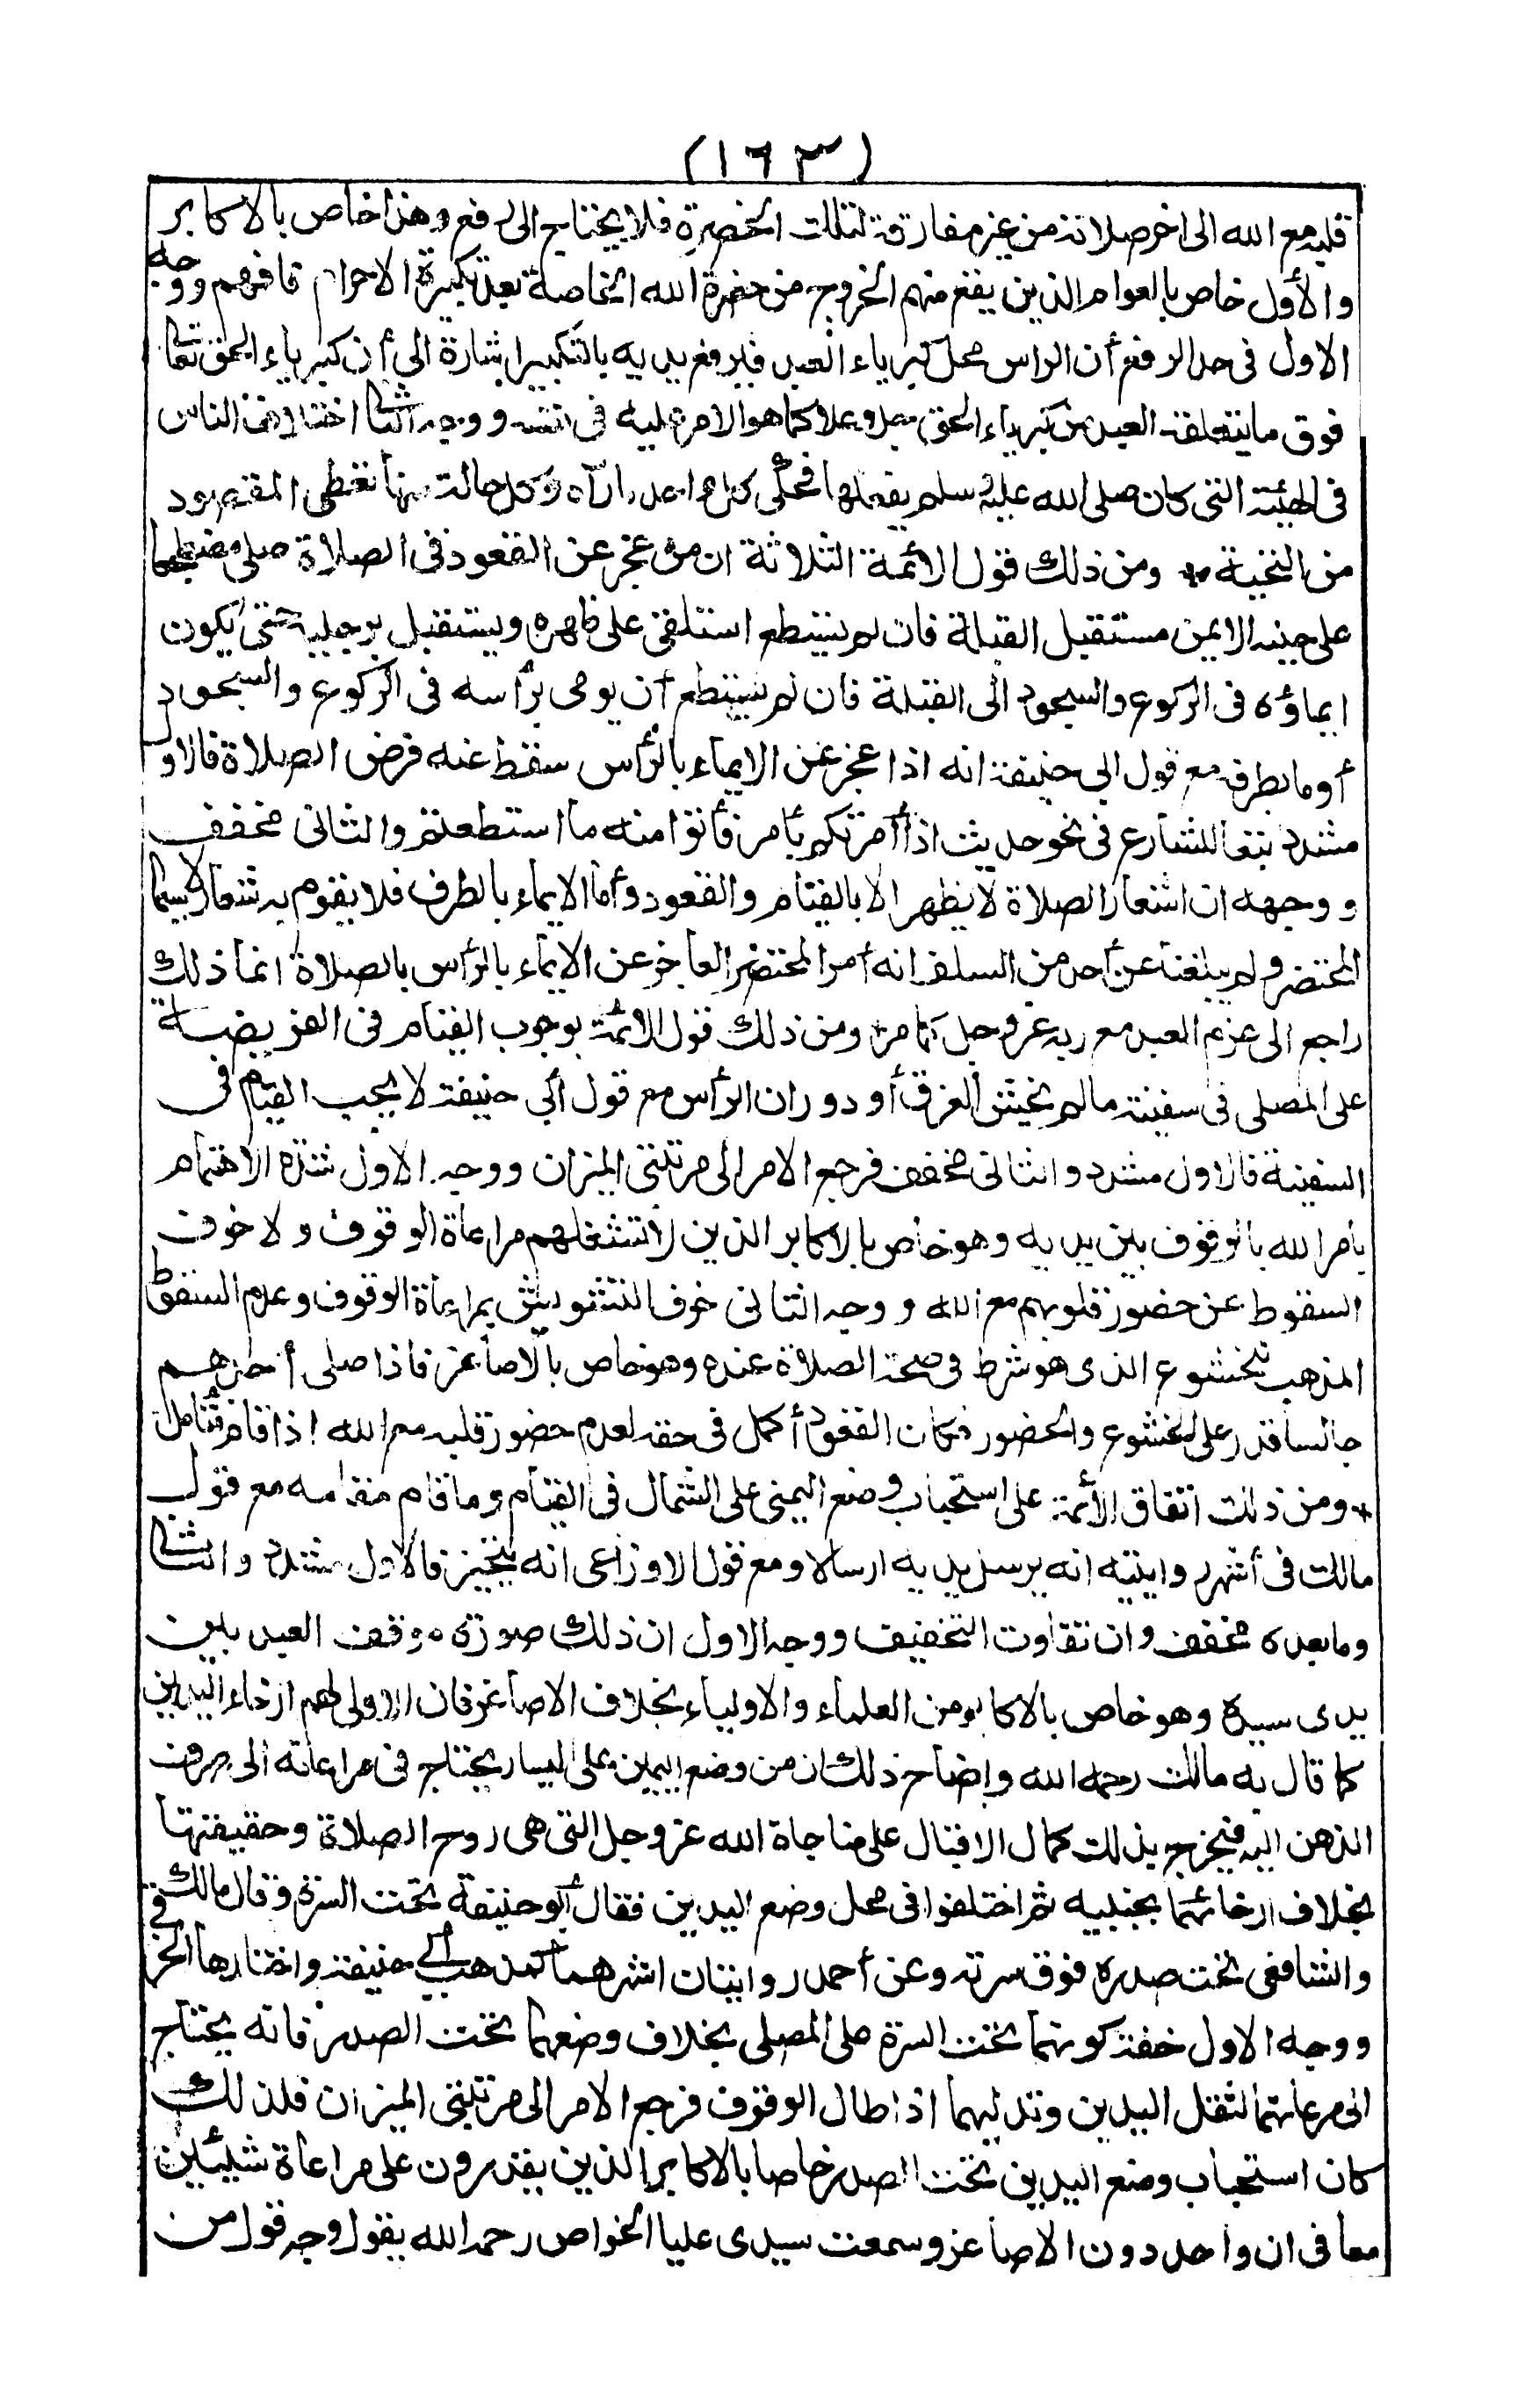 (١٦٣)
قلبه مع الله الى اخر صلاته من غير مفارقة لتلك الحضرة فلا يحتاج الى رفع وهذا خاص بالاكابر
والأول خاص بالعوام الذين يقع منهم الخروج من حضرة الله الخاصة بعد تكبيرة الاحرام فافهم ووجه
الاول فى حد الرفع أن الراس محل كبرياء العبد فيرفع يديه بالتكبير اشارة الى أن كبرياء الحق تعالى
فوق ما يتعلقه العبد من كبرياء الحق جل وعلا كما هو الامر عليه فى نفسه ووجه الثانى اختلاف الناس
فى الهيئة التى كان صلى الله عليه وسلم يفعلها فحكى كل واحد ما رآه وكل حالة منها تعطى المقصود
من التحية * ومن ذلك قول الائمة الثلاثة ان من عجز عن القعود فى الصلاة صلى مضطجعا
على جنبه الايمن مستقبل القبلة فان لم يستطع استلقى على ظهره ويستقبل برجليه حتى يكون
ايماؤه فى الركوع والسجود الى القبلة فان لم يستطع أن يومى برأسه فى الركوع والسجود
أومأ بطرفه مع قول ابى حنيفة انه اذا عجز عن الايماء بالرأس سقط عنه فرض الصلاة فالاول
مشدد تبعا للشارع فى نحو حديث اذا أمرتكم بأمر فأتوا منه ما استطعتم والثانى مخفف
ووجهه ان اشعار الصلاة لا يظهر الا بالقيام والقعود وأما الايماء بالطرف فلا يقوم به شعار لاسيما
المحتضر ولم يبلغنا عن أحد من السلف انه أمر المحتضر العاجز عن الايماء بالرأس بالصلاة انما ذلك
راجع الى عزم العبد مع ربه عز وجل كما مر * ومن ذلك قول الائمة بوجوب القيام فى الفريضة
على المصلى فى سفينة ما لم يخش الغرق أو دوران الرأس مع قول أبى حنيفة لا يجب القيام فى
السفينة فالاول مشدد والثانى مخفف فرجع الامر الى مرتبتى الميزان ووجه الاول شدة الاهتمام
بأمر الله بالوقوف بين يديه وهو خاص بالاكابر الذين لا تشغلهم مراعاة الوقوف ولا خوف
السقوط عن حضور قلوبهم مع الله ووجه الثانى خوف التشويش بمراعاة الوقوف وعدم السقوط
المذهب للخشوع الذى هو شرط فى صحة الصلاة عنده وهو خاص بالاصاغر فاذا صلى أحدهم
جالسا قدر على الخشوع والحضور فكان القعود أكمل فى حقه لعدم حضور قلبه مع الله اذا قام فتأمل
* ومن ذلك اتفاق الأئمة على استحباب وضع اليمنى على الشمال فى القيام وما قام مقامه مع قول
مالك فى أشهر روايتيه انه يرسل يديه ارسالا ومع قول الاوزاعى انه يتخير فالاول مشدد والثانى
وما بعده مخفف وان تفاوت التخفيف ووجه الاول ان ذلك صورة موقف العبد بين
يدى سيده وهو خاص بالاكابر من العلماء والاولياء بخلاف الاصاغر فان الاولى لهم ارخاء اليدين
كما قال به مالك رحمه الله وايضاح ذلك ان من وضع اليمين على اليسار يحتاج فى مراعاته الى صرف
الذهن اليه فيخرج بذلك كمال الاقبال على مناجاة الله عز وجل التى هى روح الصلاة وحقيقتها
بخلاف ارخائهما بجنبيه ثم اختلفوا فى محل وضع اليدين فقال أبو حنيفة تحت السرة وقال مالك
والشافعى تحت صدره فوق سرته وعن أحمد روايتان اشهرهما كمذهب أبى حنيفة واختارها الخرقى
ووجه الاول خفة كونهما تحت السرة على المصلى بخلاف وضعهما تحت الصدر فانه يحتاج
الى مراعاتهما لثقل اليدين وتدليهما اذا طال الوقوف فرجع الامر الى مرتبتى الميزان فلذلك
كان استحباب وضع اليدين تحت الصدر خاصا بالاكابر الذين يقدرون على مراعاة شيئين
معا فى ان واحد دون الاصاغر وسمعت سيدى عليا الخواص رحمه الله يقول وجه قول من